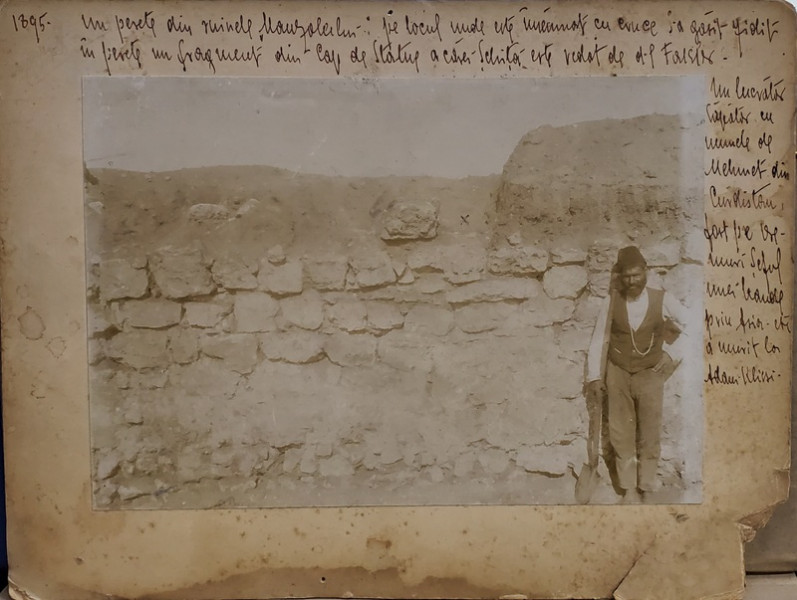 1895. un perete din ruinele Mauzoleului: pe locul unde este însemnat cu cruce s'a găsit zidit
în perete un fragment din Cap de Statue a cărei Schiță este redat de dl
Un lucrător
săpător cu
numele de
Mehmet din
Curdistan,
fost pe vre-
muri Șeful
unei bande
prin Asia.
a murit la
Adam Klissi.